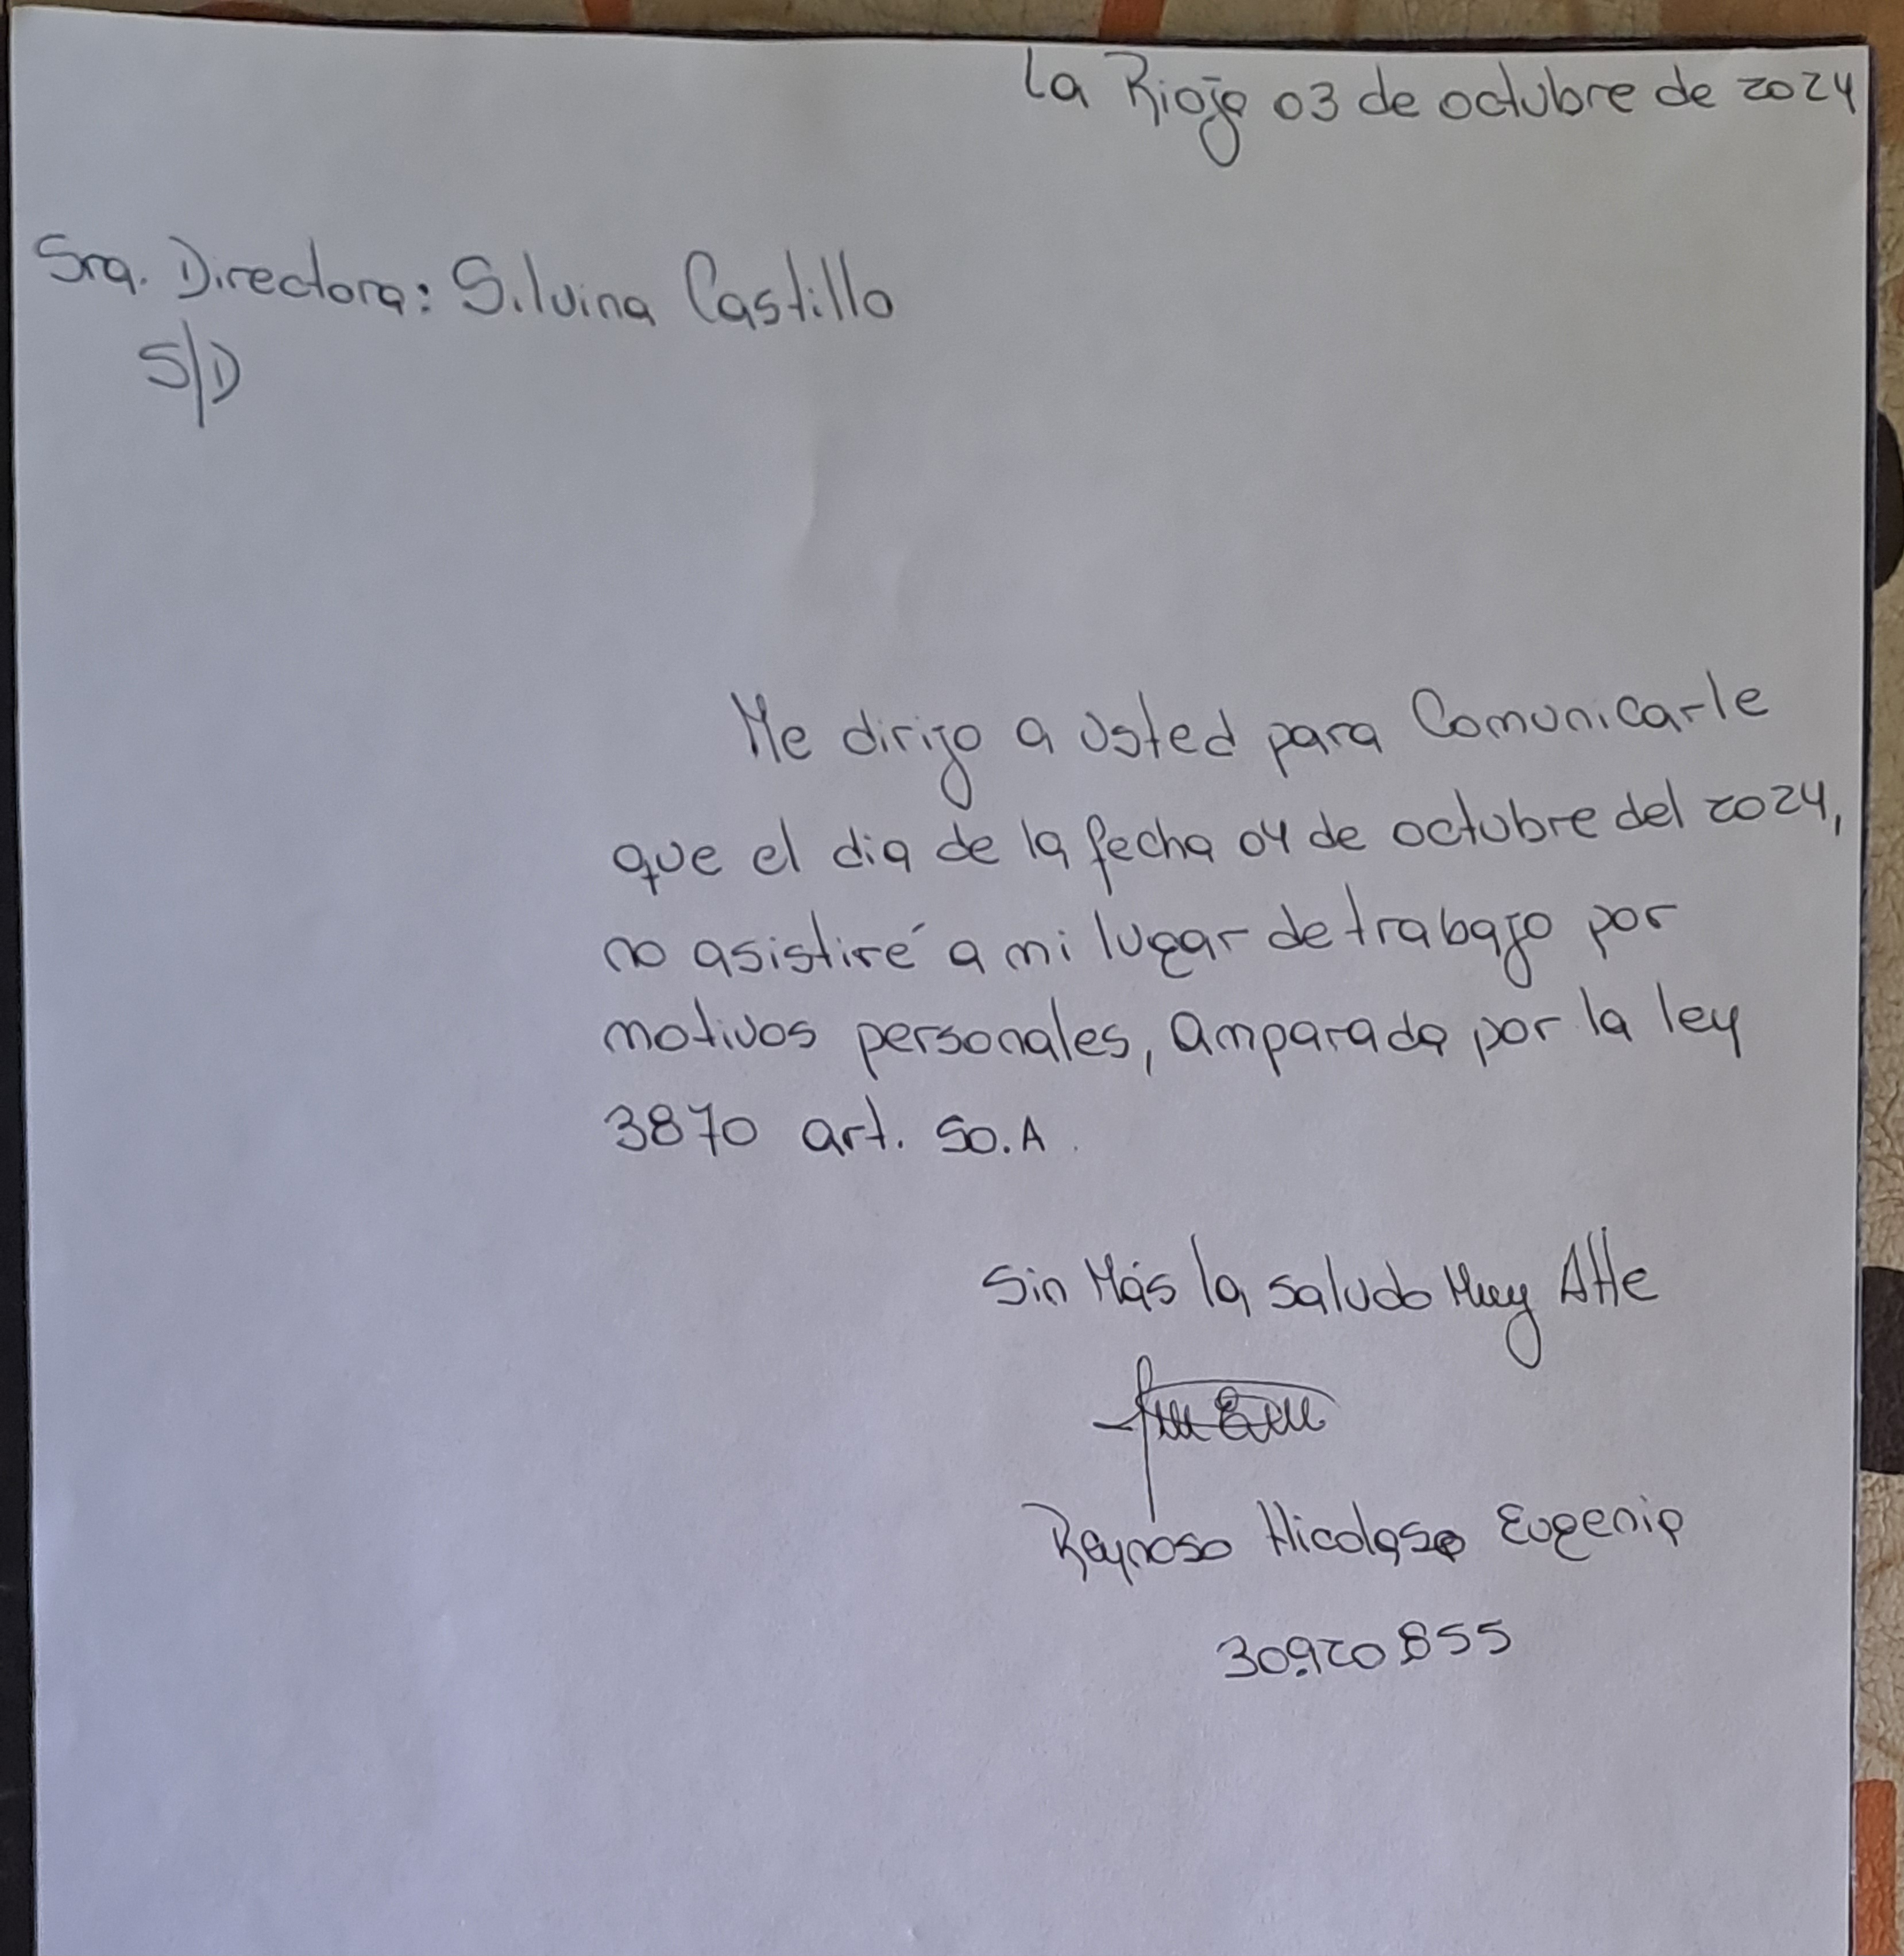 La Rioja 03 de octubre de 2024
Sra. Directora: Silvina Castillo
S/D
Me dirijo a usted para Comunicarle
que el dia de la fecha 04 de octubre del 2024,
no asistiré a mi lugar de trabajo por
motivos personales, amparada por la ley
3870 art. 50.A.
Sin Más la saludo Muy Atte
Reynoso Nicolasa Eugenia
30.920.855